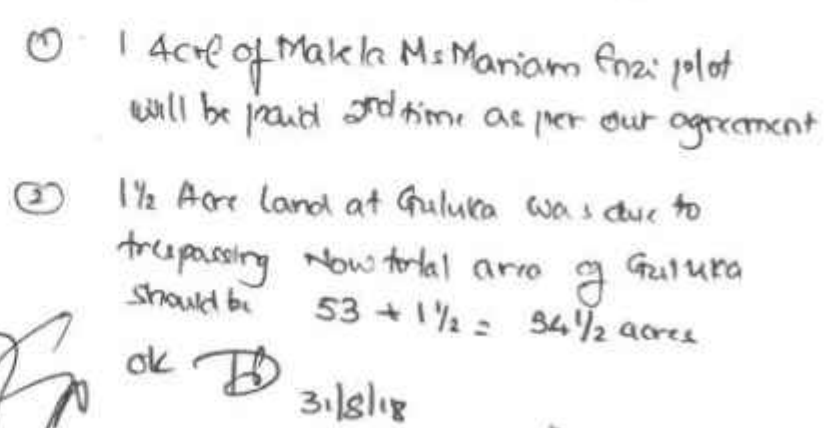 ① 1 Acre of Makela Ms Mariam Enzi plot
will be paid 2nd time as per our agreement
② 1½ Acre land at Guluka was due to
trespassing Now total area of Guluka
should be 53 + 1½ = 54½ acres
ok
31/8/18